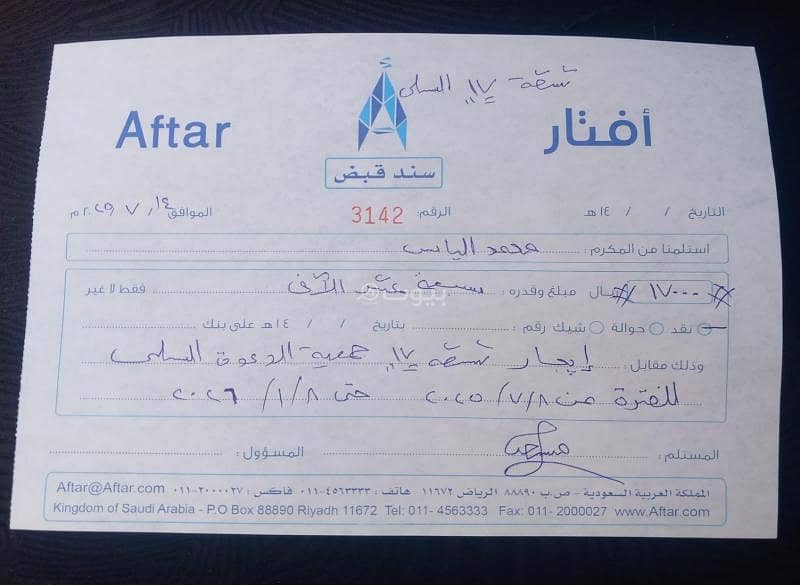 شقة ١٧ السلي
Aftar
أ
أفتار
سند قبض
التاريخ / / ١٤هـ الرقم: 3142 الموافق ١٤ / ٧ / ٢٠٢٥م
استلمنا من المكرم : محمد الياس
# ١٧٠٠٠ # ريال مبلغ وقدره : سبعة عشر الآف فقط لا غير
نقد حوالة شيك رقم : بتاريخ / / ١٤هـ على بنك
وذلك مقابل : إيجار شقة ١٧ جمعية الدعوة السلي
للفترة من ٢٠٢٥/٧/٨ حتى ٢٠٢٦/١/٨
المستلم : المسؤول :
المملكة العربية السعودية - ص.ب ٨٨٨٩٠ الرياض ١١٦٧٢ هاتف : ٤٥٦٣٣٣٣-٠١١ فاكس : ٢٠٠٠٠٢٧-٠١١ Aftar@Aftar.com
Kingdom of Saudi Arabia - P.O Box 88890 Riyadh 11672 Tel: 011- 4563333 Fax: 011- 2000027 www.Aftar.com
بيوت